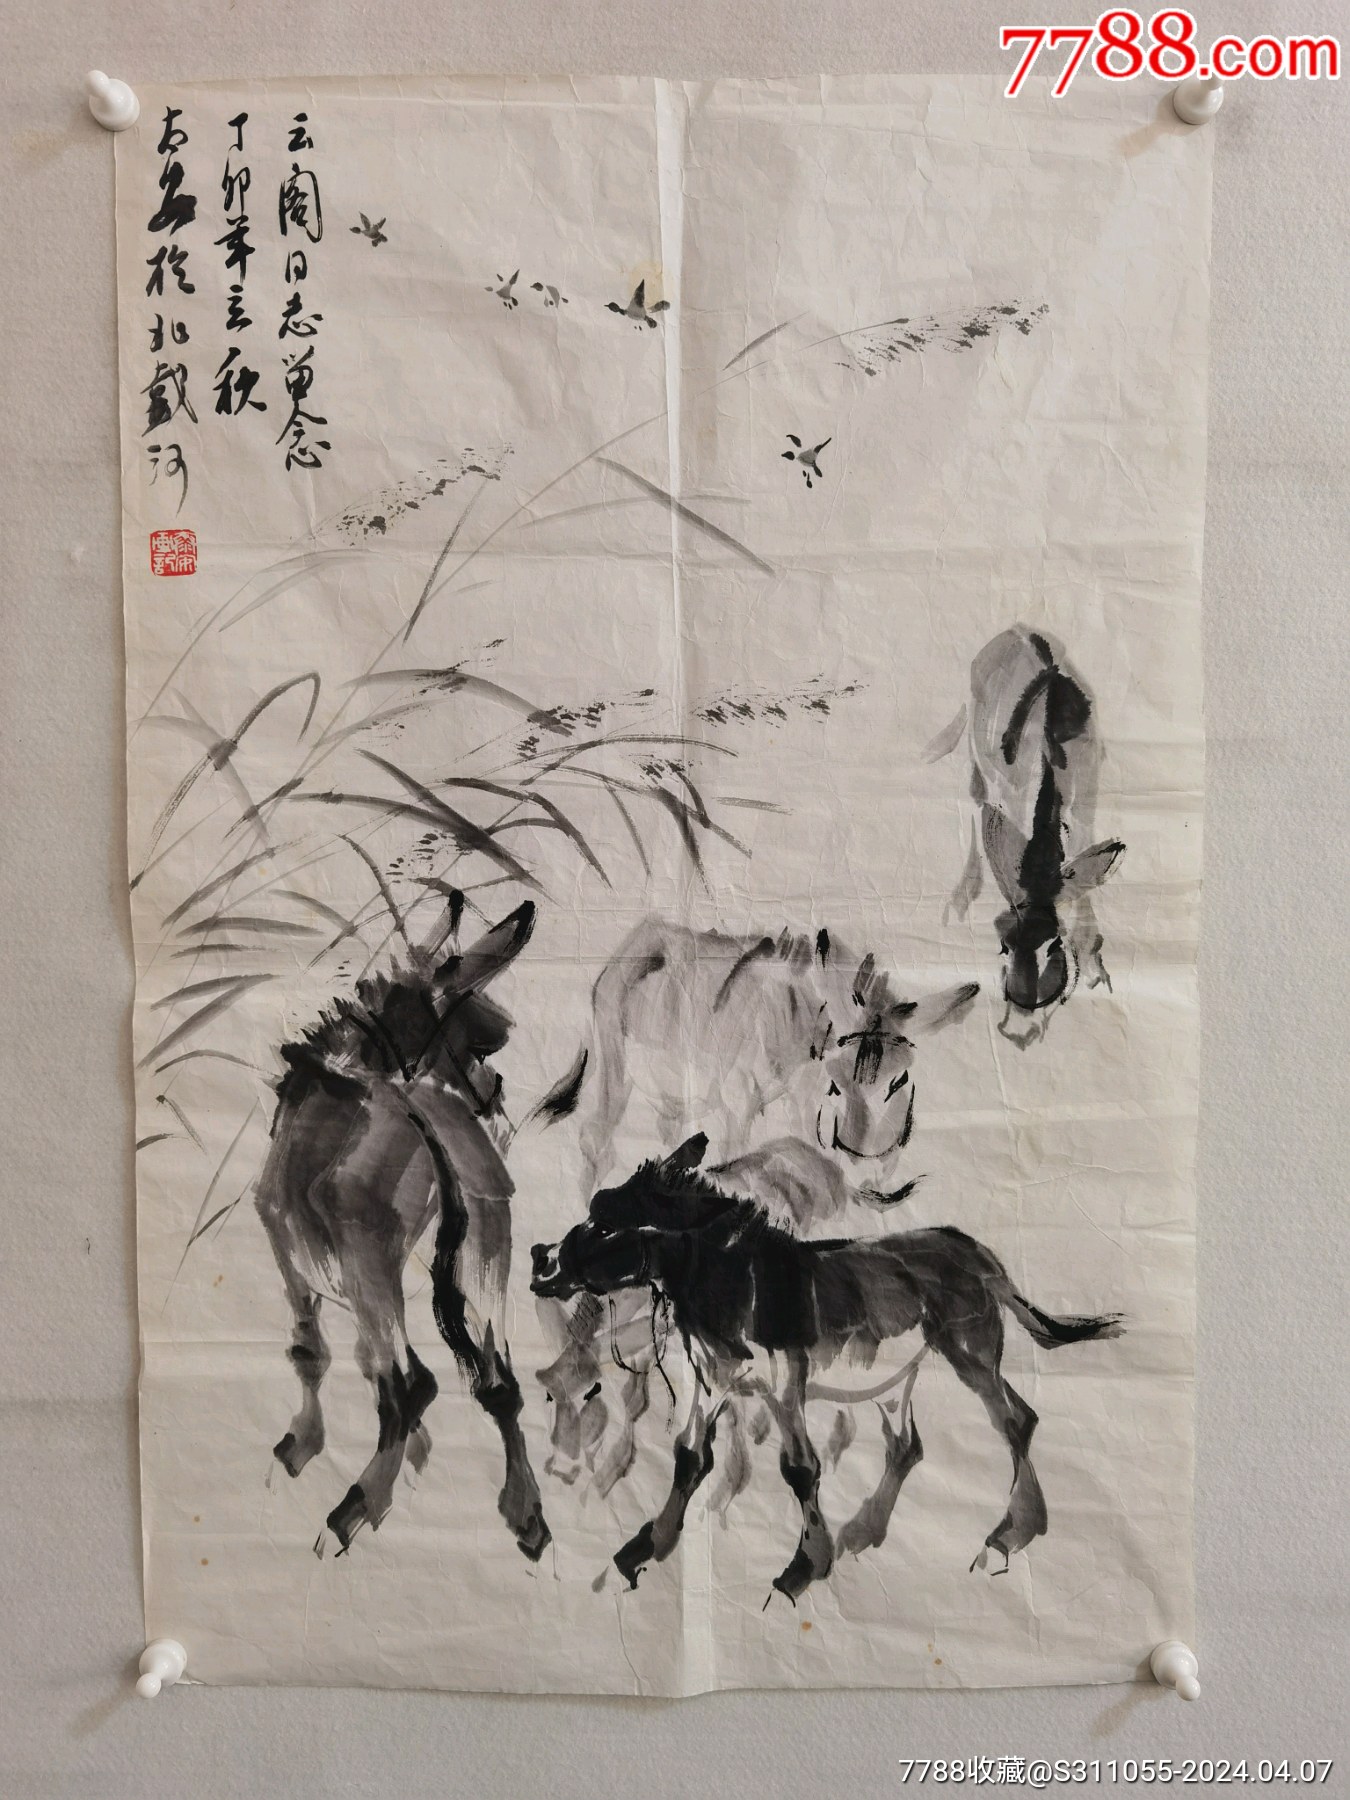 7788.com
云阁同志留念
丁卯年立秋
安於北戴河
7788收藏@S311055-2024.04.07